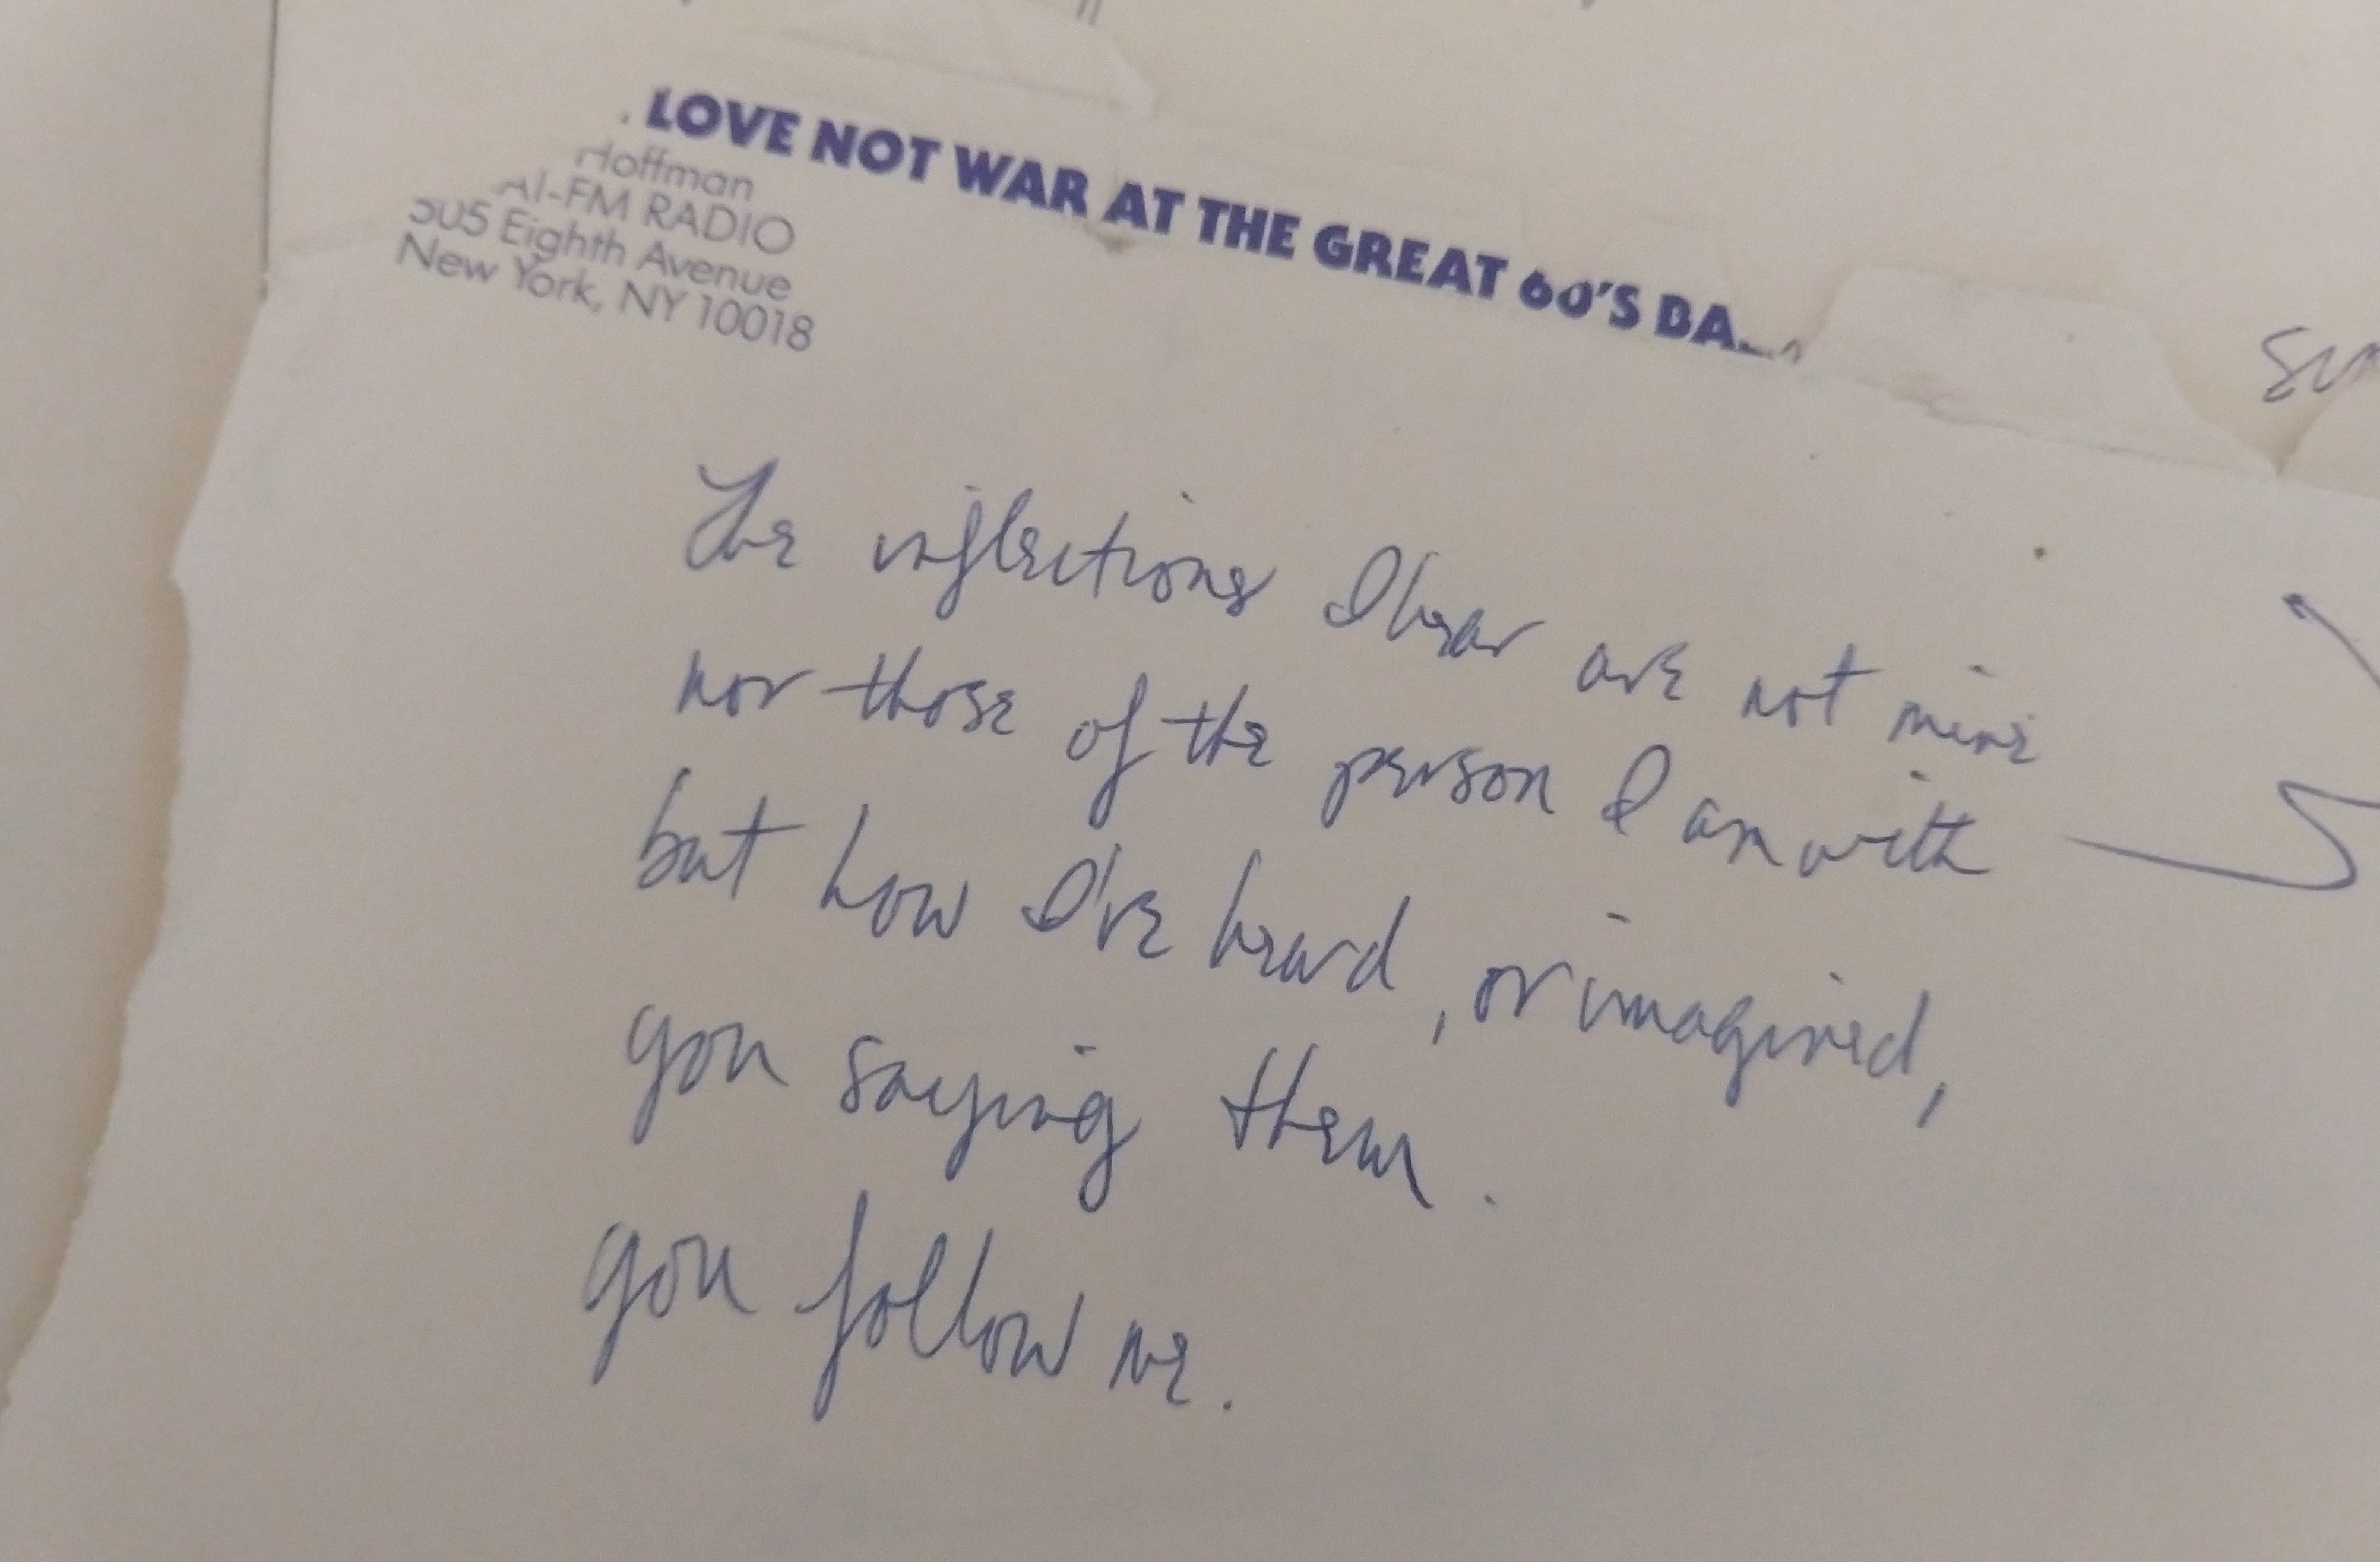 LOVE NOT WAR AT THE GREAT 60'S
Hoffman
AI-FM RADIO
505 Eighth Avenue
New York, NY 10018
The inflections I hear are not mine
nor those of the person I am with
but how I've heard, or imagined,
you saying them.
you follow me.